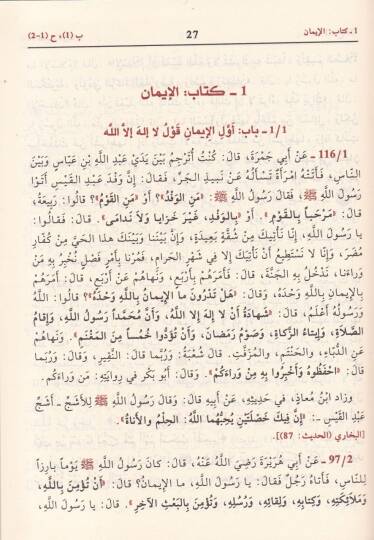 1 ـ كتاب: الإيمان
27
ب (1)، ح (1-2)
1 ـ كتاب: الإيمان
1/1 ـ باب: أوّل الإيمان قَوْلُ لا إله إلاّ الله
116/1 ـ عَنْ أَبِي جَمْرَةَ، قَالَ: كُنْتُ أُتَرْجِمُ بَيْنَ يَدَيْ عَبْدِ اللَّهِ بْنِ عَبَّاسٍ وَبَيْنَ
النَّاسِ، فَأَتَتْهُ امْرَأَةٌ تَسْأَلُهُ عَنْ نَبِيذِ الجَرِّ، فَقَالَ: إِنَّ وَفْدَ عَبْدِ القَيْسِ أَتَوْا
رَسُولَ اللَّهِ ﷺ، فَقَالَ رَسُولُ اللَّهِ ﷺ: «مَنِ الوَفْدُ»؟ أَوْ «مَنِ القَوْمُ»؟ قَالُوا: رَبِيعَةُ،
قَالَ: «مَرْحَباً بِالقَوْمِ». أَوْ «بِالوَفْدِ، غَيْرَ خَزَايَا وَلاَ نَدَامَى». قَالَ: فَقَالُوا:
يا رَسُولَ اللَّهِ، إِنَّا نَأْتِيكَ مِنْ شُقَّةٍ بَعِيدَةٍ، وَإِنَّ بَيْنَنَا وَبَيْنَكَ هذا الحَيَّ مِنْ كُفَّارِ
مُضَرَ، وَإِنَّا لا نَسْتَطِيعُ أَنْ نَأْتِيَكَ إِلاَّ فِي شَهْرِ الحَرَامِ، فَمُرْنَا بِأَمْرٍ فَصْلٍ نُخْبِرُ بِهِ مَنْ
وَرَاءَنَا، نَدْخُلُ بِهِ الجَنَّةَ، قَالَ: فَأَمَرَهُمْ بِأَرْبَعٍ، وَنَهَاهُمْ عَنْ أَرْبَعٍ، قَالَ: أَمَرَهُمْ
بِالإِيمَانِ بِاللَّهِ وَحْدَهُ، وَقَالَ: «هَلْ تَدْرُونَ مَا الإِيمَانُ بِاللَّهِ وَحْدَهُ»؟ قَالُوا: اللَّهُ
وَرَسُولُهُ أَعْلَمُ، قَالَ: «شَهَادَةُ أَنْ لا إِلهَ إِلاَّ اللَّهُ، وَأَنَّ مُحَمَّداً رَسُولُ اللَّهِ، وَإِقَامُ
الصَّلاَةِ، وَإِيتَاءُ الزَّكَاةِ، وَصَوْمُ رَمَضَانَ، وَأَنْ تُؤَدُّوا خُمُساً مِنَ المَغْنَمِ». وَنَهَاهُمْ
عَنِ الدُّبَّاءِ، وَالحَنْتَمِ، وَالمُزَفَّتِ. قَالَ شُعْبَةُ: وَرُبَّمَا قَالَ: النَّقِيرِ، وَقَالَ: وَرُبَّمَا
قَالَ: «احْفَظُوهُ وَأَخْبِرُوا بِهِ مِنْ وَرَائِكُمْ». وَقَالَ: أَبُو بَكْرٍ فِي رِوَايَتِهِ: مَنْ وَرَاءَكُمْ.
وزاد ابْنُ مُعَاذٍ، فِي حَدِيثِهِ، عَنْ أَبِيهِ قَالَ: وَقَالَ رَسُولُ اللَّهِ ﷺ لِلأَشَجِّ ـ أَشَجِّ
عَبْدِ القَيْسِ ـ: «إِنَّ فِيكَ خَصْلَتَيْنِ يُحِبُّهُمَا اللَّهُ: الحِلْمُ وَالأَنَاةُ».
[البخاري (الحديث: 87)].
97/2 ـ عَنْ أَبِي هُرَيْرَةَ رَضِيَ اللَّهُ عَنْهُ، قَالَ: كَانَ رَسُولُ اللَّهِ ﷺ يَوْماً بَارِزاً
لِلنَّاسِ، فَأَتَاهُ رَجُلٌ فَقَالَ: يا رَسُولَ اللَّهِ، ما الإِيمَانُ؟ قَالَ: «أَنْ تُؤْمِنَ بِاللَّهِ،
وَمَلاَئِكَتِهِ، وَكِتَابِهِ، وَلِقَائِهِ، وَرُسُلِهِ، وَتُؤْمِنَ بِالبَعْثِ الآخِرِ». قَالَ: يا رَسُولَ اللَّهِ،